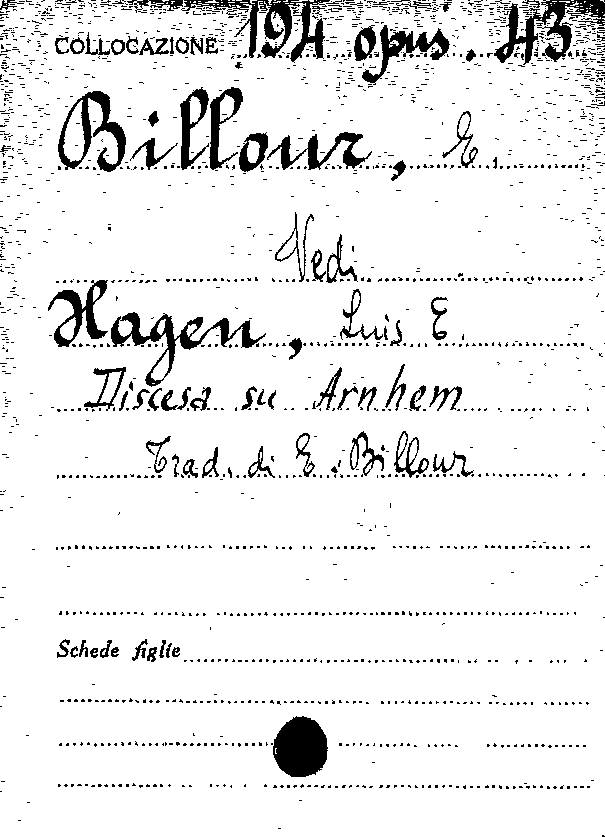 COLLOCAZIONE 194 opus. 43
Billour, E.
Vedi
Hagen, Luis E.
Discesa su Arnhem
Trad. di E. Billour
Schede figlie